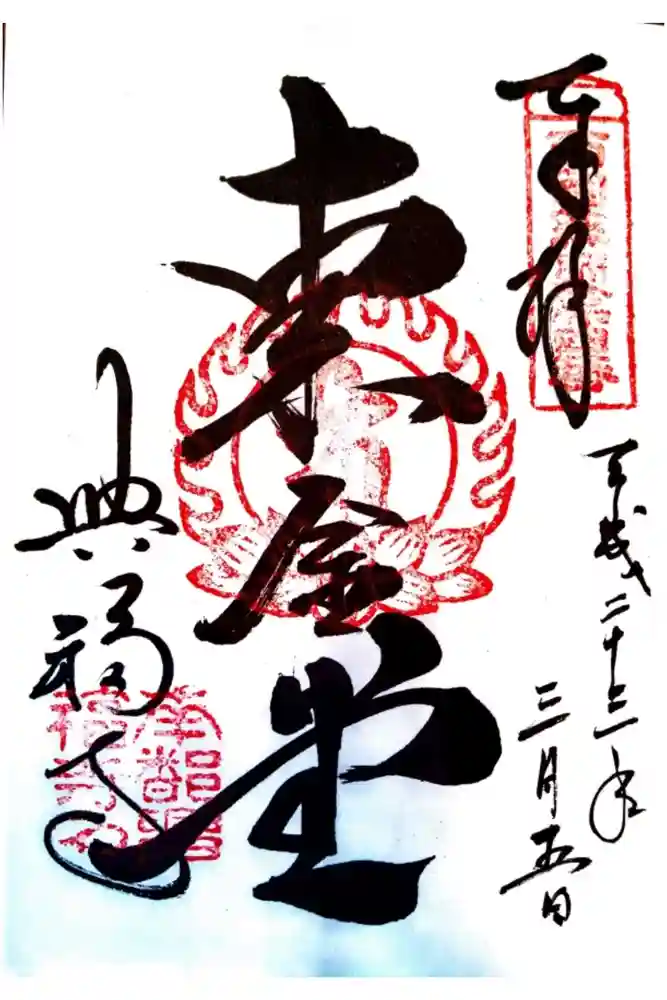 奉拝
平成二十三年
三月五日
東金堂
興福寺
南都